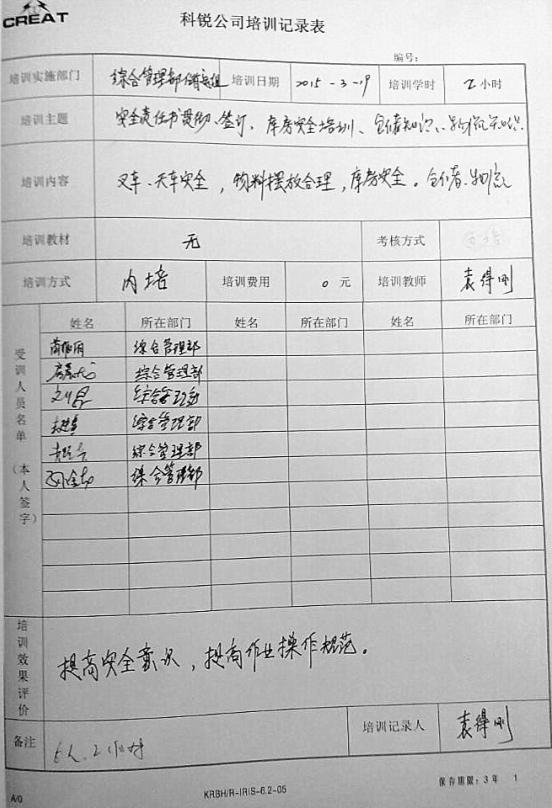 CREAT
科锐公司培训记录表
编号:
培训实施部门 综合管理部储运组 培训日期 2015-3-19 培训学时 2小时
培训主题 安全责任书贯彻、签订、库房安全培训、仓储知识、物流知识
培训内容 叉车、天车安全，物料摆放合理，库房安全。仓储、物流
培训教材 无 考核方式
培训方式 内培 培训费用 0元 培训教师 袁得刚
受训人员名单（本人签字） 姓名 所在部门 姓名 所在部门 姓名 所在部门
综合管理部
综合管理部
综合管理部
综合管理部
综合管理部
综合管理部
培训效果评价 提高安全意识，提高作业操作规范。
备注 6人 2小时 培训记录人 袁得刚
A/0 KRBH/R-IRIS-6.2-05 保存期限：3年 1